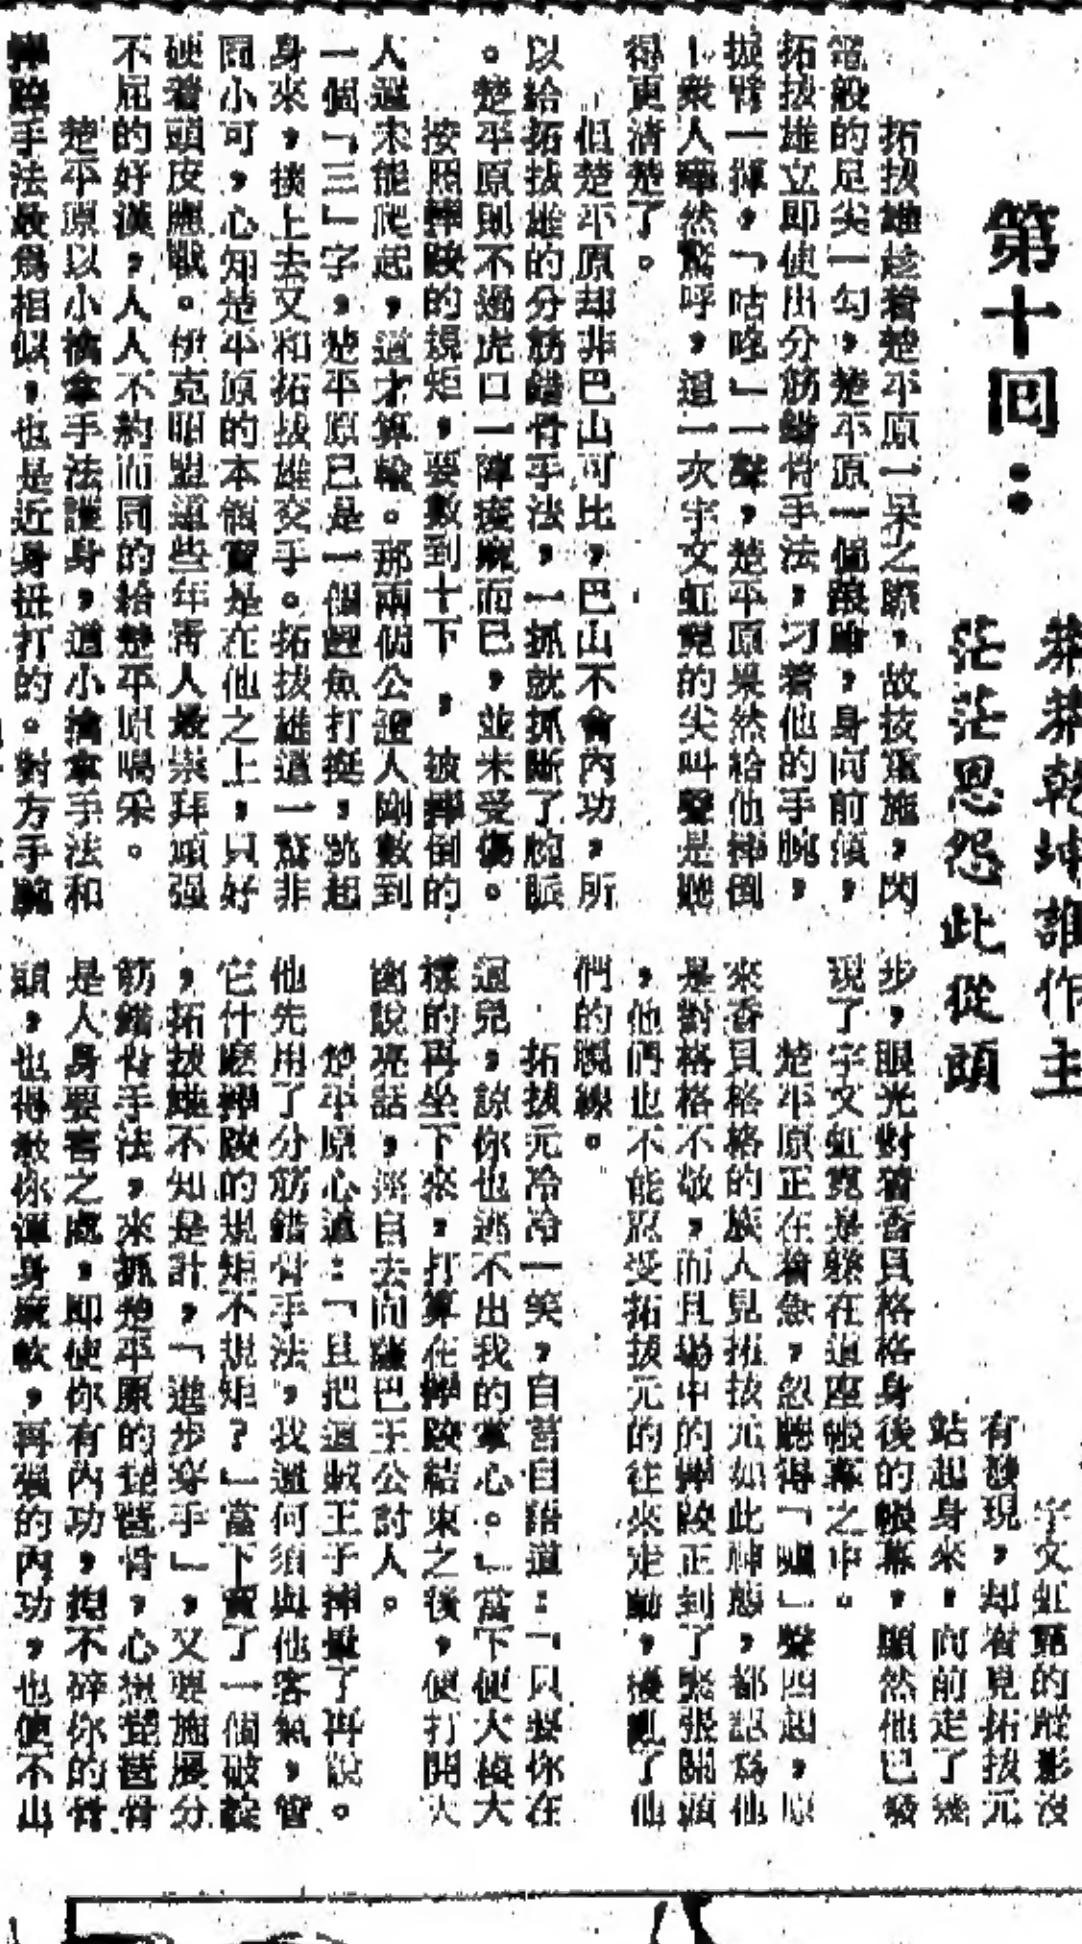 第十回：
莽莽乾坤誰作主
茫茫恩怨此從頭
拓拔雄趁着楚平原一呆之際，故技重施，閃
電般的足尖一勾，楚平原一個踉蹌，身向前傾，
拓拔雄立即使出分筋錯骨手法，刁着他的手腕，
振臂一揮，「咕咚」一聲，楚平原果然給他摔倒
！衆人嘩然驚呼，這一次宇文虹霓的尖叫聲是聽
得更清楚了。
但楚平原却非巴山可比，巴山不會內功，所
以給拓拔雄的分筋錯骨手法，一抓就抓斷了腕脈
。楚平原則不過虎口一陣痠痳而已，並未受傷。
按照摔跤的規矩，要數到十下，被摔倒的
人還未能爬起，這才算輸。那兩個公證人剛數到
一個「三」字，楚平原已是一個鯉魚打挺，跳起
身來，撲上去又和拓拔雄交手。拓拔雄這一驚非
同小可，心知楚平原的本領實是在他之上，只好
硬着頭皮應戰。伊克昭盟這些年青人最崇拜頑强
不屈的好漢，人人不約而同的給楚平原喝采。
楚平原以小擒拿手法護身，這小擒拿手法和
摔跤手法最爲相似，也是近身扭打的。對方手腕
宇文虹霓的蹤影沒
有發現，却看見拓拔元
站起身來，向前走了幾
步，眼光對着香貝格格身後的帳幕，顯然他已發
現了宇文虹霓是躱在這座帳幕之中。
楚平原正在着急，忽聽得「噓」聲四起，原
來香貝格格的族人見拓拔元如此神態，都認爲他
是對格格不敬，而且場中的摔跤正到了緊張關頭
，他們也不能忍受拓拔元的往來走動，擾亂了他
們的視線。
拓拔元冷冷一笑，自言自語道：「只要你在
這兒，諒你也逃不出我的掌心。」當下便大模大
樣的再坐下來，打算在摔跤結束之後，便打開天
窗說亮話，逕自去向薩巴王公討人。
楚平原心道：「且把這賊王子摔低了再說。
他先用了分筋錯骨手法，我還何須與他客氣，管
它什麽摔跤的規矩不規矩？」當下賣了一個破綻
，拓拔雄不知是計，「進步穿手」，又要施展分
筋錯骨手法，來抓楚平原的琵琶骨，心想琵琶骨
是人身要害之處，即使你有內功，揑不碎你的骨
頭，也得敎你渾身痳軟，再强的內功，也使不出